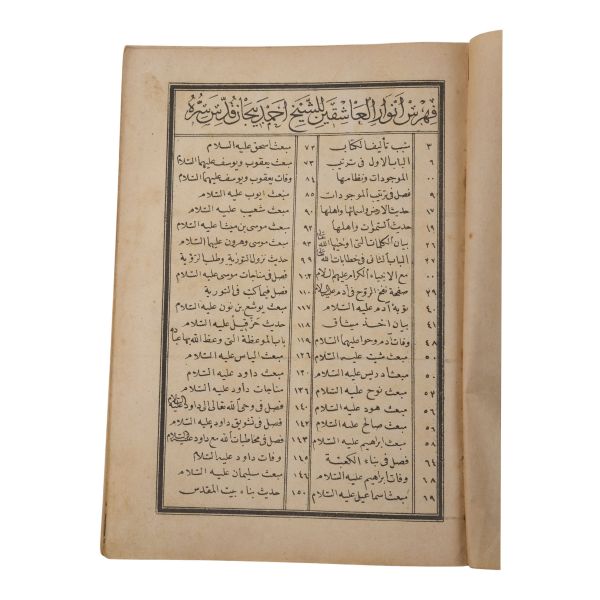 فهرس انوار العاشقين للشيخ احمد بيجان قدس سره
٣ سبب تأليف الكتاب
٦ الباب الاول فى ترتيب
٠٠ الموجودات ونظامها
٩ فصل فى ترتيب الموجودات
١٧ حديث الارض واسمائها واهلها
١٩ حديث السموات واهلها
٢٦ بيان الكلمات التى اوحيها الله
٢٧ الباب الثانى فى خطابات الله
٠٠ مع الانبياء الكرام عليهم السلام
٢٩ نفخ الروح فى آدم عليه السلام
٤٠ توبة آدم عليه السلام
٤١ بيان اخذ ميثاق
٤٨ وفات آدم وحوا عليهما السلام
٥٠ مبعث شيت عليه السلام
٥٠ مبعث ادريس عليه السلام
٥٧ مبعث نوح عليه السلام
٥٦ مبعث هود عليه السلام
٥٦ مبعث صالح عليه السلام
٥٨ مبعث ابراهيم عليه السلام
٦٤ فصل فى بناء الكعبة
٦٨ وفات ابراهيم عليه السلام
٦٩ مبعث اسماعيل عليه السلام
٧٢ مبعث اسحق عليه السلام
٧٣ مبعث يعقوب ويوسف عليهما السلام
٨٤ وفات يعقوب ويوسف عليهما السلام
٨٥ مبعث ايوب عليه السلام
٩٠ مبعث شعيب عليه السلام
٩٢ مبعث موسى بن ميشا عليه السلام
٩٣ مبعث موسى وهرون عليهما السلام
٩٩ حديث نزول التورية وطلب الرؤية
١٠٣ فصل فى مناجات موسى عليه السلام
١١٠ فصل فيما كتب فى التورية
١١٧ مبعث يوشع بن نون عليه السلام
١١٨ حديث حزقيل عليه السلام
١١٩ باب الموعظة التى وعظ الله بها عباده
١٢٠ مبعث الياس عليه السلام
١٣٠ مبعث داود عليه السلام
١٣٦ مناجات داود عليه السلام
١٤٠ فصل فى وحى الله تعالى الى داود عليه السلام
١٤٢ فصل فى تشويق داود عليه السلام
١٤٣ فصل فى مخاطبات الله مع داود عليه السلام
١٤٥ وفات داود عليه السلام
١٤٦ مبعث سليمان عليه السلام
١٥٠ حديث بناء بيت المقدس